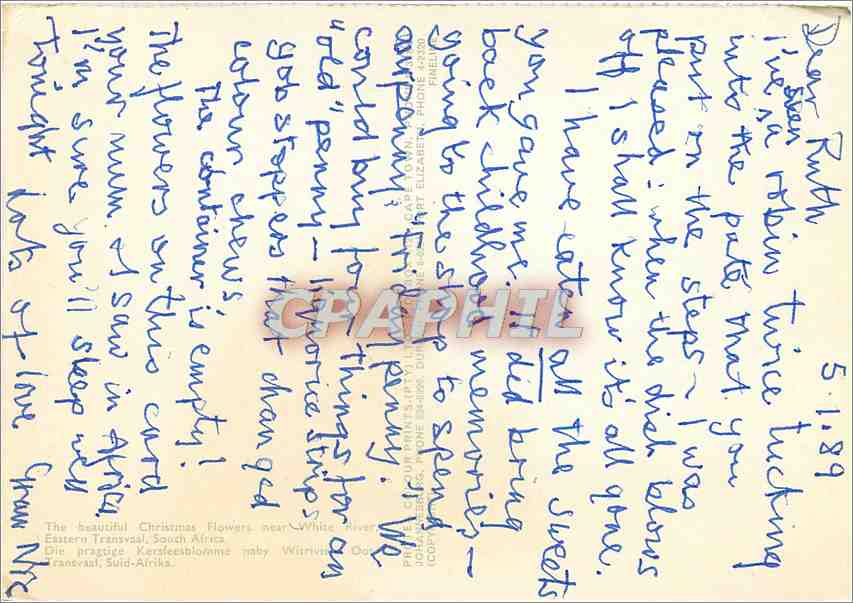 5.1.89
Dear Ruth
I've seen a robin twice tucking
into the pate that you
put on the steps - I was
pleased: when the dish blows
off I shall know it's all gone.
I have eaten all the sweets
you gave me. It did bring
back childhood memories -
going to the shop to spend
our penny, "Friday penny". We
could buy for things for an
"old" penny - liquorice strips
gobstoppers that changed
colour, chews
The container is empty!
The flowers on this card
your mum & I saw in Africa.
I'm sure you'll sleep well
tonight Lots of love Gran
The beautiful Christmas Flowers near White River,
Eastern Transvaal, South Africa.
Die pragtige Kersfeesblomme naby Witrivier, Oos
Transvaal, Suid-Afrika.
COLOUR PRINTS (PTY) CAPE TOWN, PHONE
JOHANNESBURG, PHONE PORT ELIZABETH, PHONE
(COPYRIGHT) FINELINE
CPAPHIL